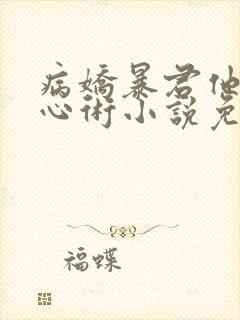 病嬌暴君他
心術小說免
福蝶